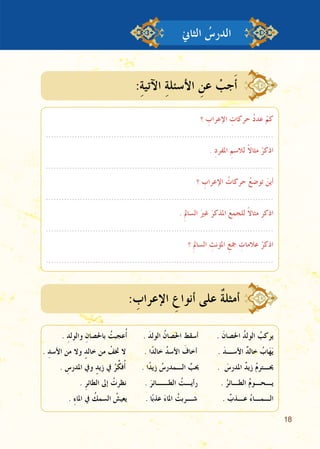 الدرسُ الثاني
أَجبْ عنِ الأسئلةِ الآتيةِ:
كمْ عددُ حركاتِ الإعرابِ ؟
اذكرْ مثالاً للاسمِ المفردِ .
أينَ توضعُ حركاتُ الإعرابِ ؟
اذكر مثالاً للجمعِ المذكرِ غيرِ السالمِ .
اذكرْ علاماتِ جمعِ المؤنث السالمِ ؟
أمثلةٌ على أنواعِ الإعرابِ:
يركبُ الولدُ الحصانَ . أسقطَ الحصانُ الولدَ . أُعجبتُ بالحصانِ والولدِ .
يَهابُ خالدٌ الأســدَ . أخافَ الأسدُ خالدًا . لا تخفْ من خالدٍ ولا من الأسدِ .
يحــترمُ زيدٌ المدرسَ . يحبُّ الــمدرسُ زيدًا . أُفكّرُ في زيدٍ وفي المدرسِ .
يــحــومُ الطــائرُ . رأيــتُ الطــــائرَ . نظرتُ إلى الطائرِ .
الســمــاءُ عــذبٌ . شــربتُ الماءَ عذبًا . يعيشُ السمكُ في الماءِ .
18